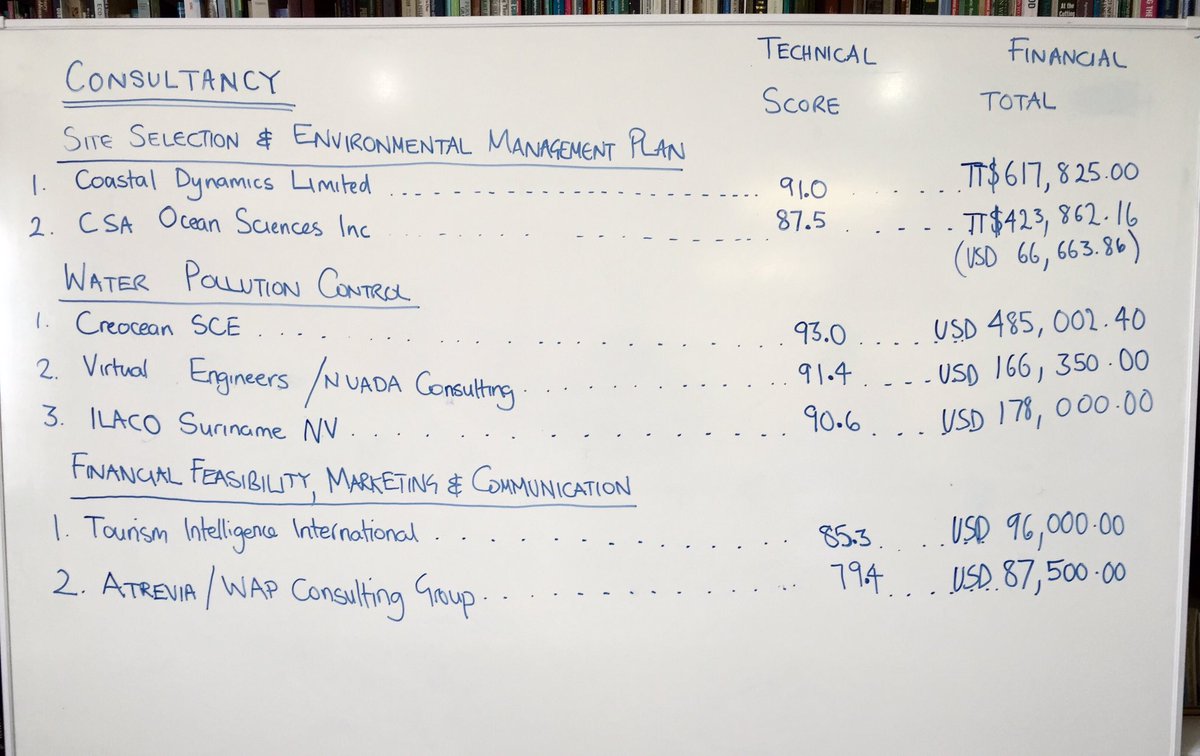 TECHNICAL FINANCIAL
CONSULTANCY SCORE TOTAL
SITE SELECTION & ENVIRONMENTAL MANAGEMENT PLAN
1. Coastal Dynamics Limited 91.0 TT$617,825.00
2. CSA Ocean Sciences Inc 87.5 TT$423,862.16
(USD 66,663.86)
WATER POLLUTION CONTROL
1. Creocean SCE 93.0 USD 485,002.40
2. Virtual Engineers /NUADA Consulting 91.4 USD 166,350.00
3. ILACO Suriname NV 90.6 USD 178,000.00
FINANCIAL FEASIBILITY, MARKETING & COMMUNICATION
1. Tourism Intelligence International 85.3 USD 96,000.00
2. ATREVIA/WAP Consulting Group 79.4 USD 87,500.00